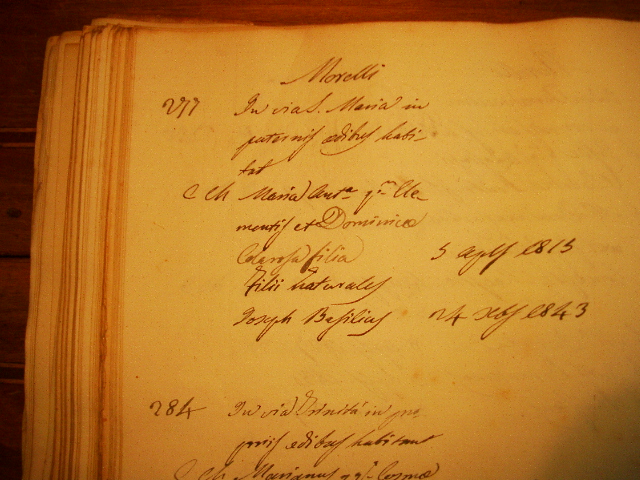 Morelli
277 In via S. Maria in
paternis ædibus habi-
tat
C Ch Maria Ant.a q.m Cle-
mentis et Dominicæ
Colarossa filia 5 aplis 1815
Filii naturales
Joseph Basilius 24 xbris 1843
284 In via Trinità in pro
priis ædibus habitant
C Ch Marianus q.m Cosmæ